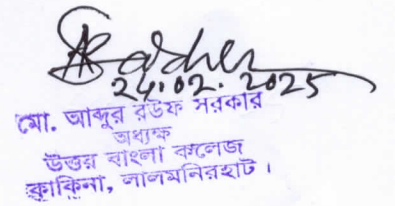 24.02.2025
মো. আব্দুর রউফ সরকার
অধ্যক্ষ
উত্তর বাংলা কলেজ
কাকিনা, লালমনিরহাট।